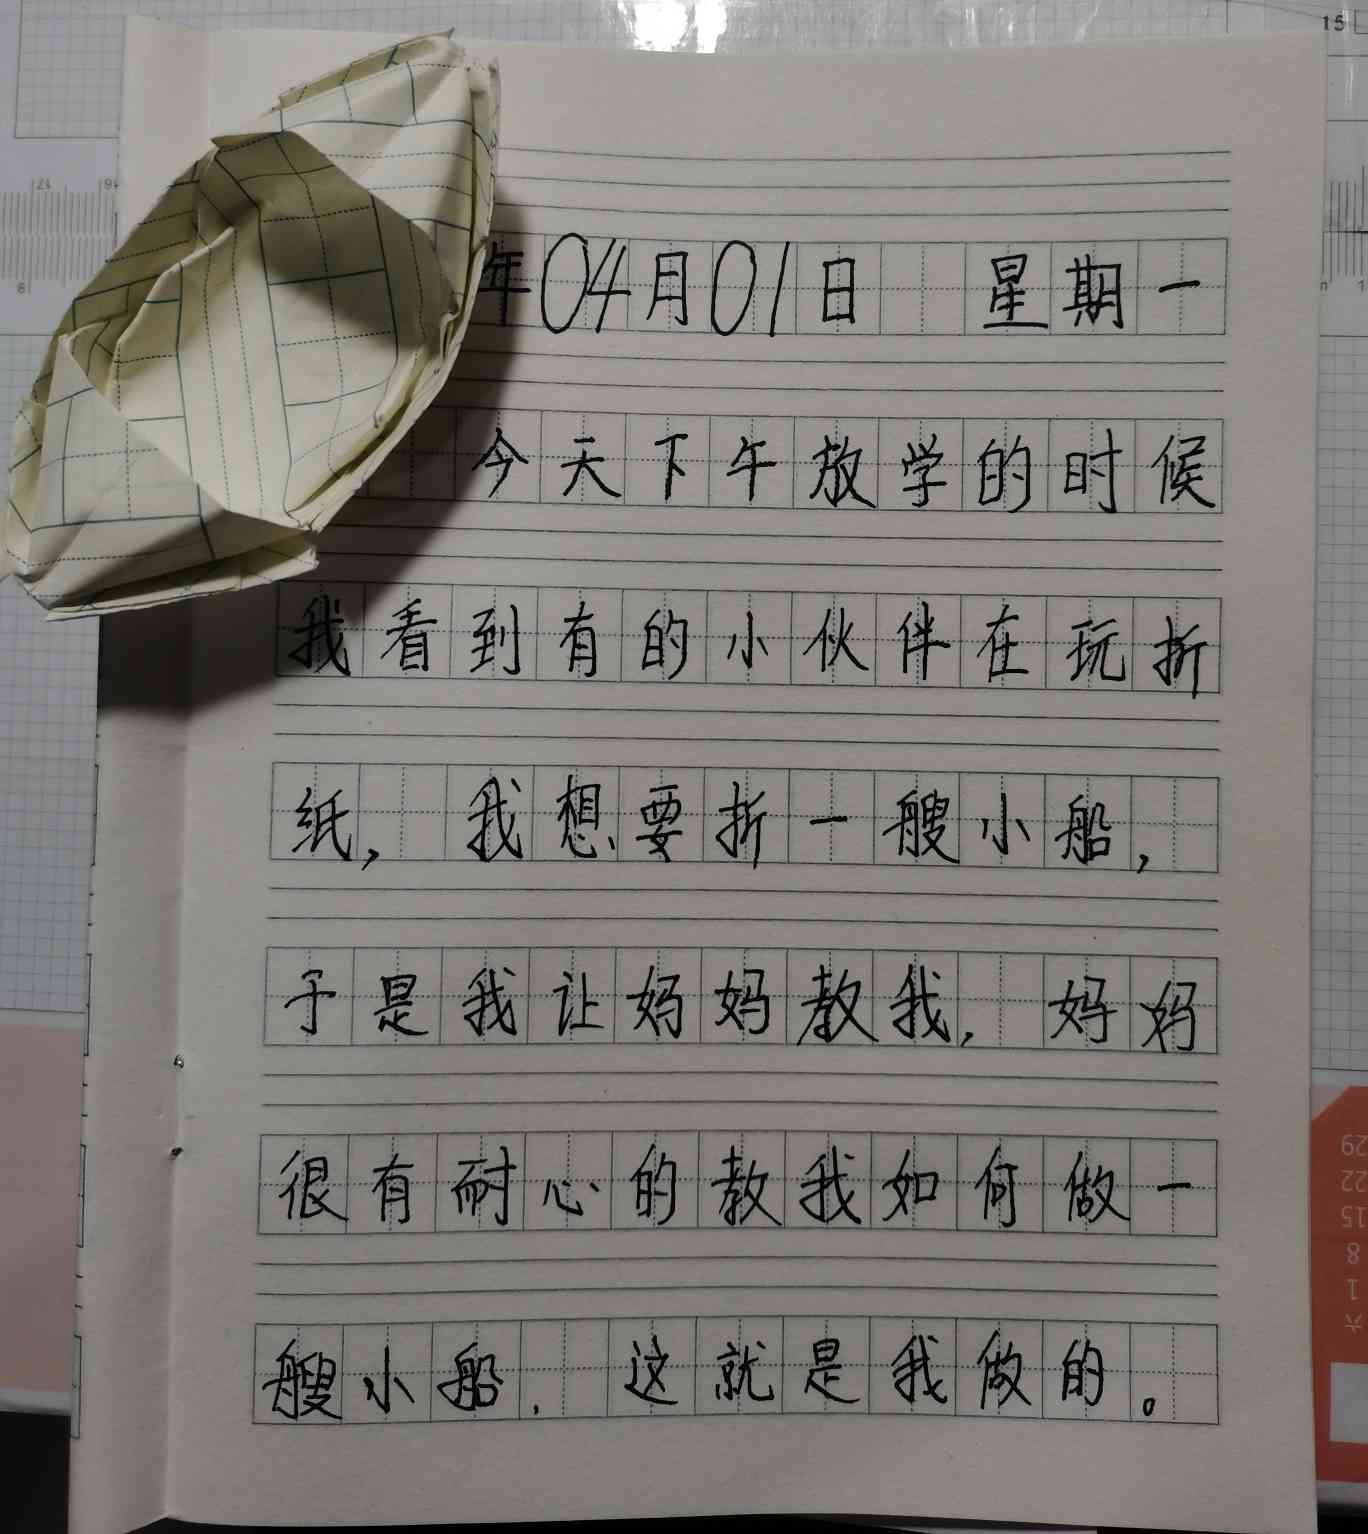 15
年04月01日 星期一
今天下午放学的时候
我看到有的小伙伴在玩折
纸， 我想要折一艘小船，
于是我让妈妈教我， 妈妈
很有耐心的教我如何做一
艘小船． 这就是我做的。
29
22
15
8
1
六